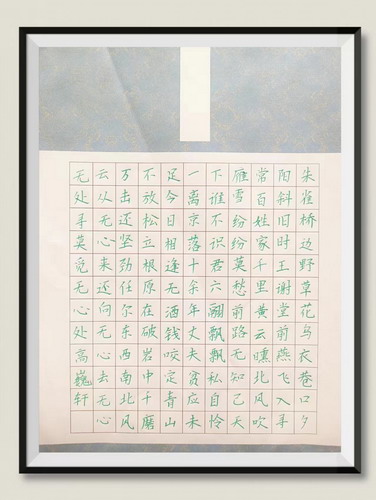 朱雀桥边野草花乌衣巷口夕
阳斜旧时王谢堂前燕飞入寻
常百姓家千里黄云曛北风吹
雁雪纷纷莫愁前路无知己天
下谁不识君六翮飘飘私自怜
一离京落十余年丈夫贫应未
足今日相逢无酒钱咬定青山
不放松立根原在破岩中千磨
万击还坚劲任尔东西南北风
云从无心来还向无心去无心
无处寻莫觅无心处高巍轩